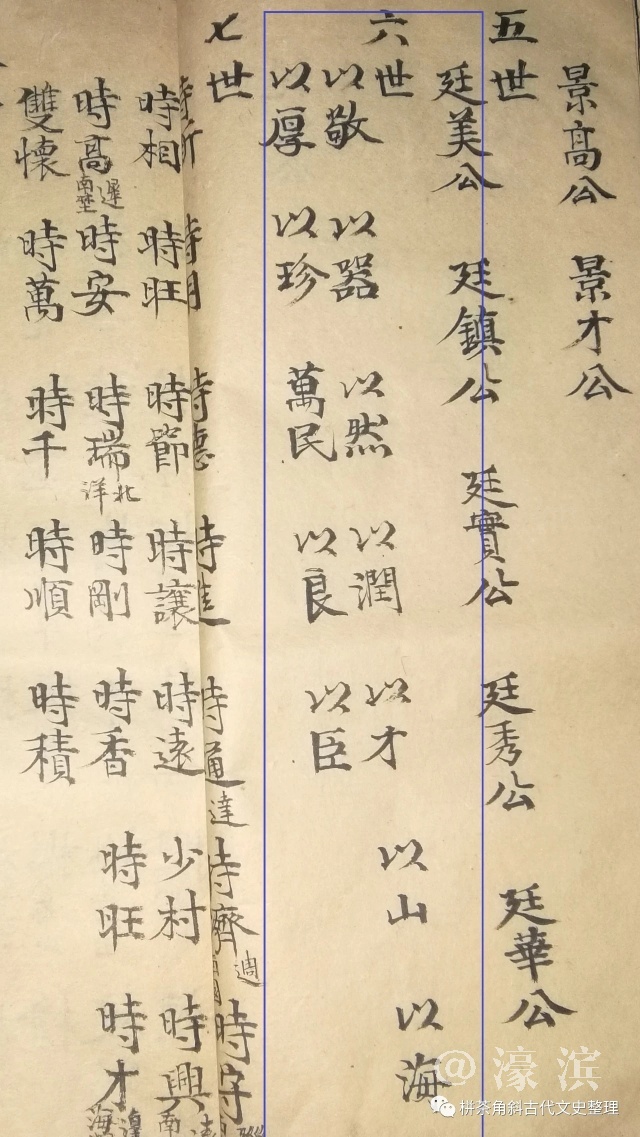 景高公 景才公
五世
廷美公 廷鎮公 廷實公 廷秀公 廷華公
六世
以敬 以器 以然 以潤 以才 以山 以海
以厚 以珍 萬民 以良 以臣
七世
時德 時進 時通 達 時齊 週 時守
時相 時旺 時節 時讓 時遠 少村 時興 南
時高 遲 南埜 時安 時瑞 北洋 時剛 時香 時旺 時才
雙懷 時萬 時千 時順 時積
@濠滨
栟茶角斜古代文史整理